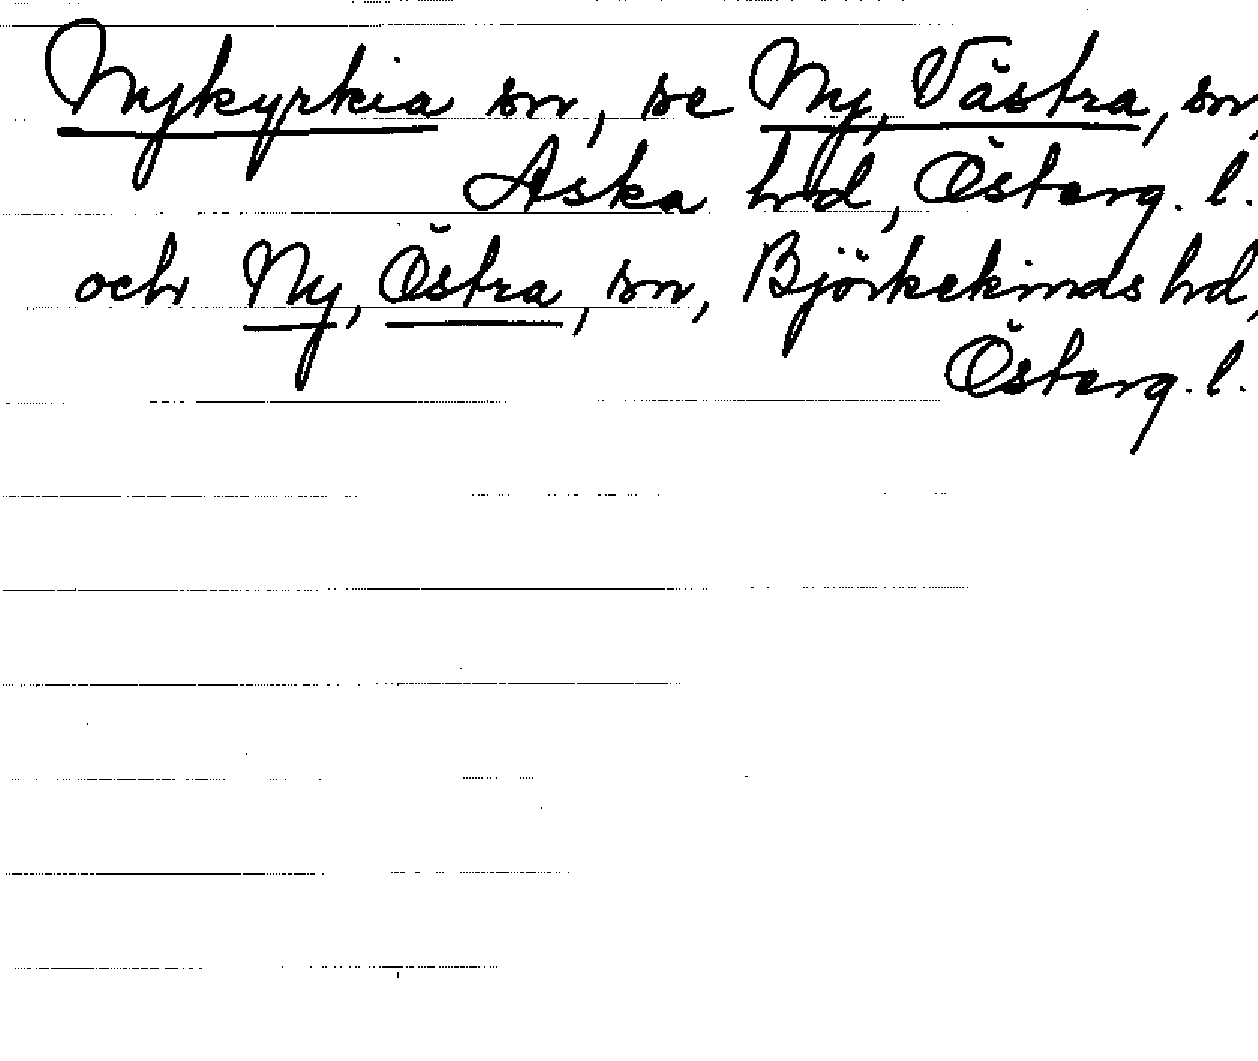 Nykyrkia sn, se Ny, Västra, sn,
Aska hd, Österg. l.
och Ny, Östra, sn, Björkekinds hd,
Österg. l.